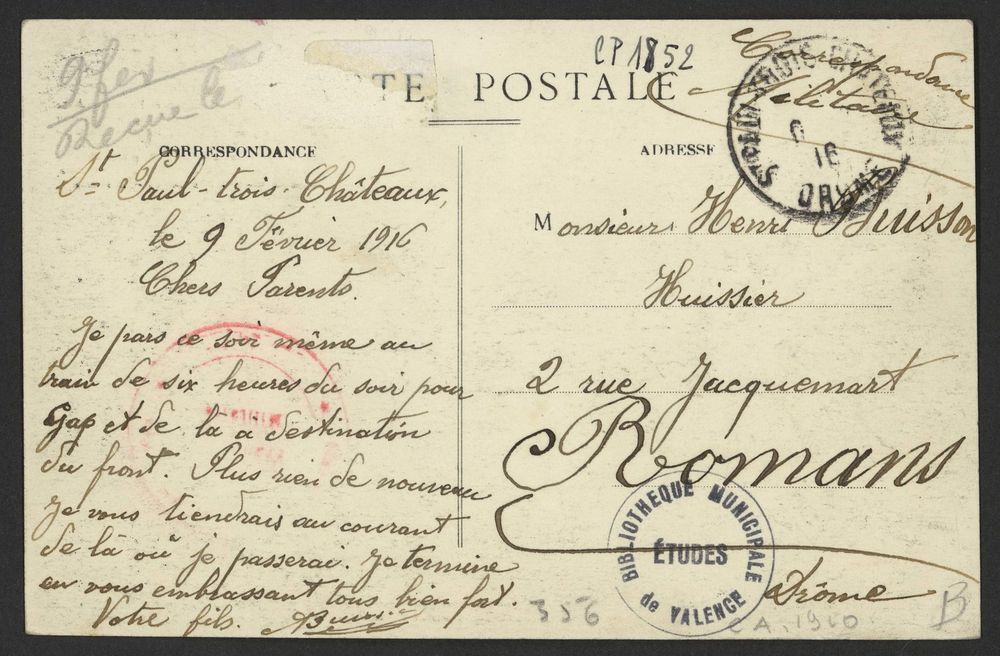 CP 1852
Correspondance
Militaire
9 fev
Reçue le
TE POSTALE
CORRESPONDANCE
ADRESSE
DROME
St Paul-trois-Châteaux,
le 9 Février 1916
Chers Parents.
Je pars ce soir même au
train de six heures du soir pour
Gap et de là à destination
du front. Plus rien de nouveau
Je vous tiendrais au courant
de là où je passerai. Je termine
en vous embrassant tous bien fort.
Votre fils.
Monsieur Henri Buisson
Huissier
2 rue Jacquemart
Romans
Drôme
BIBLIOTHEQUE MUNICIPALE
ÉTUDES
de VALENCE
356
B